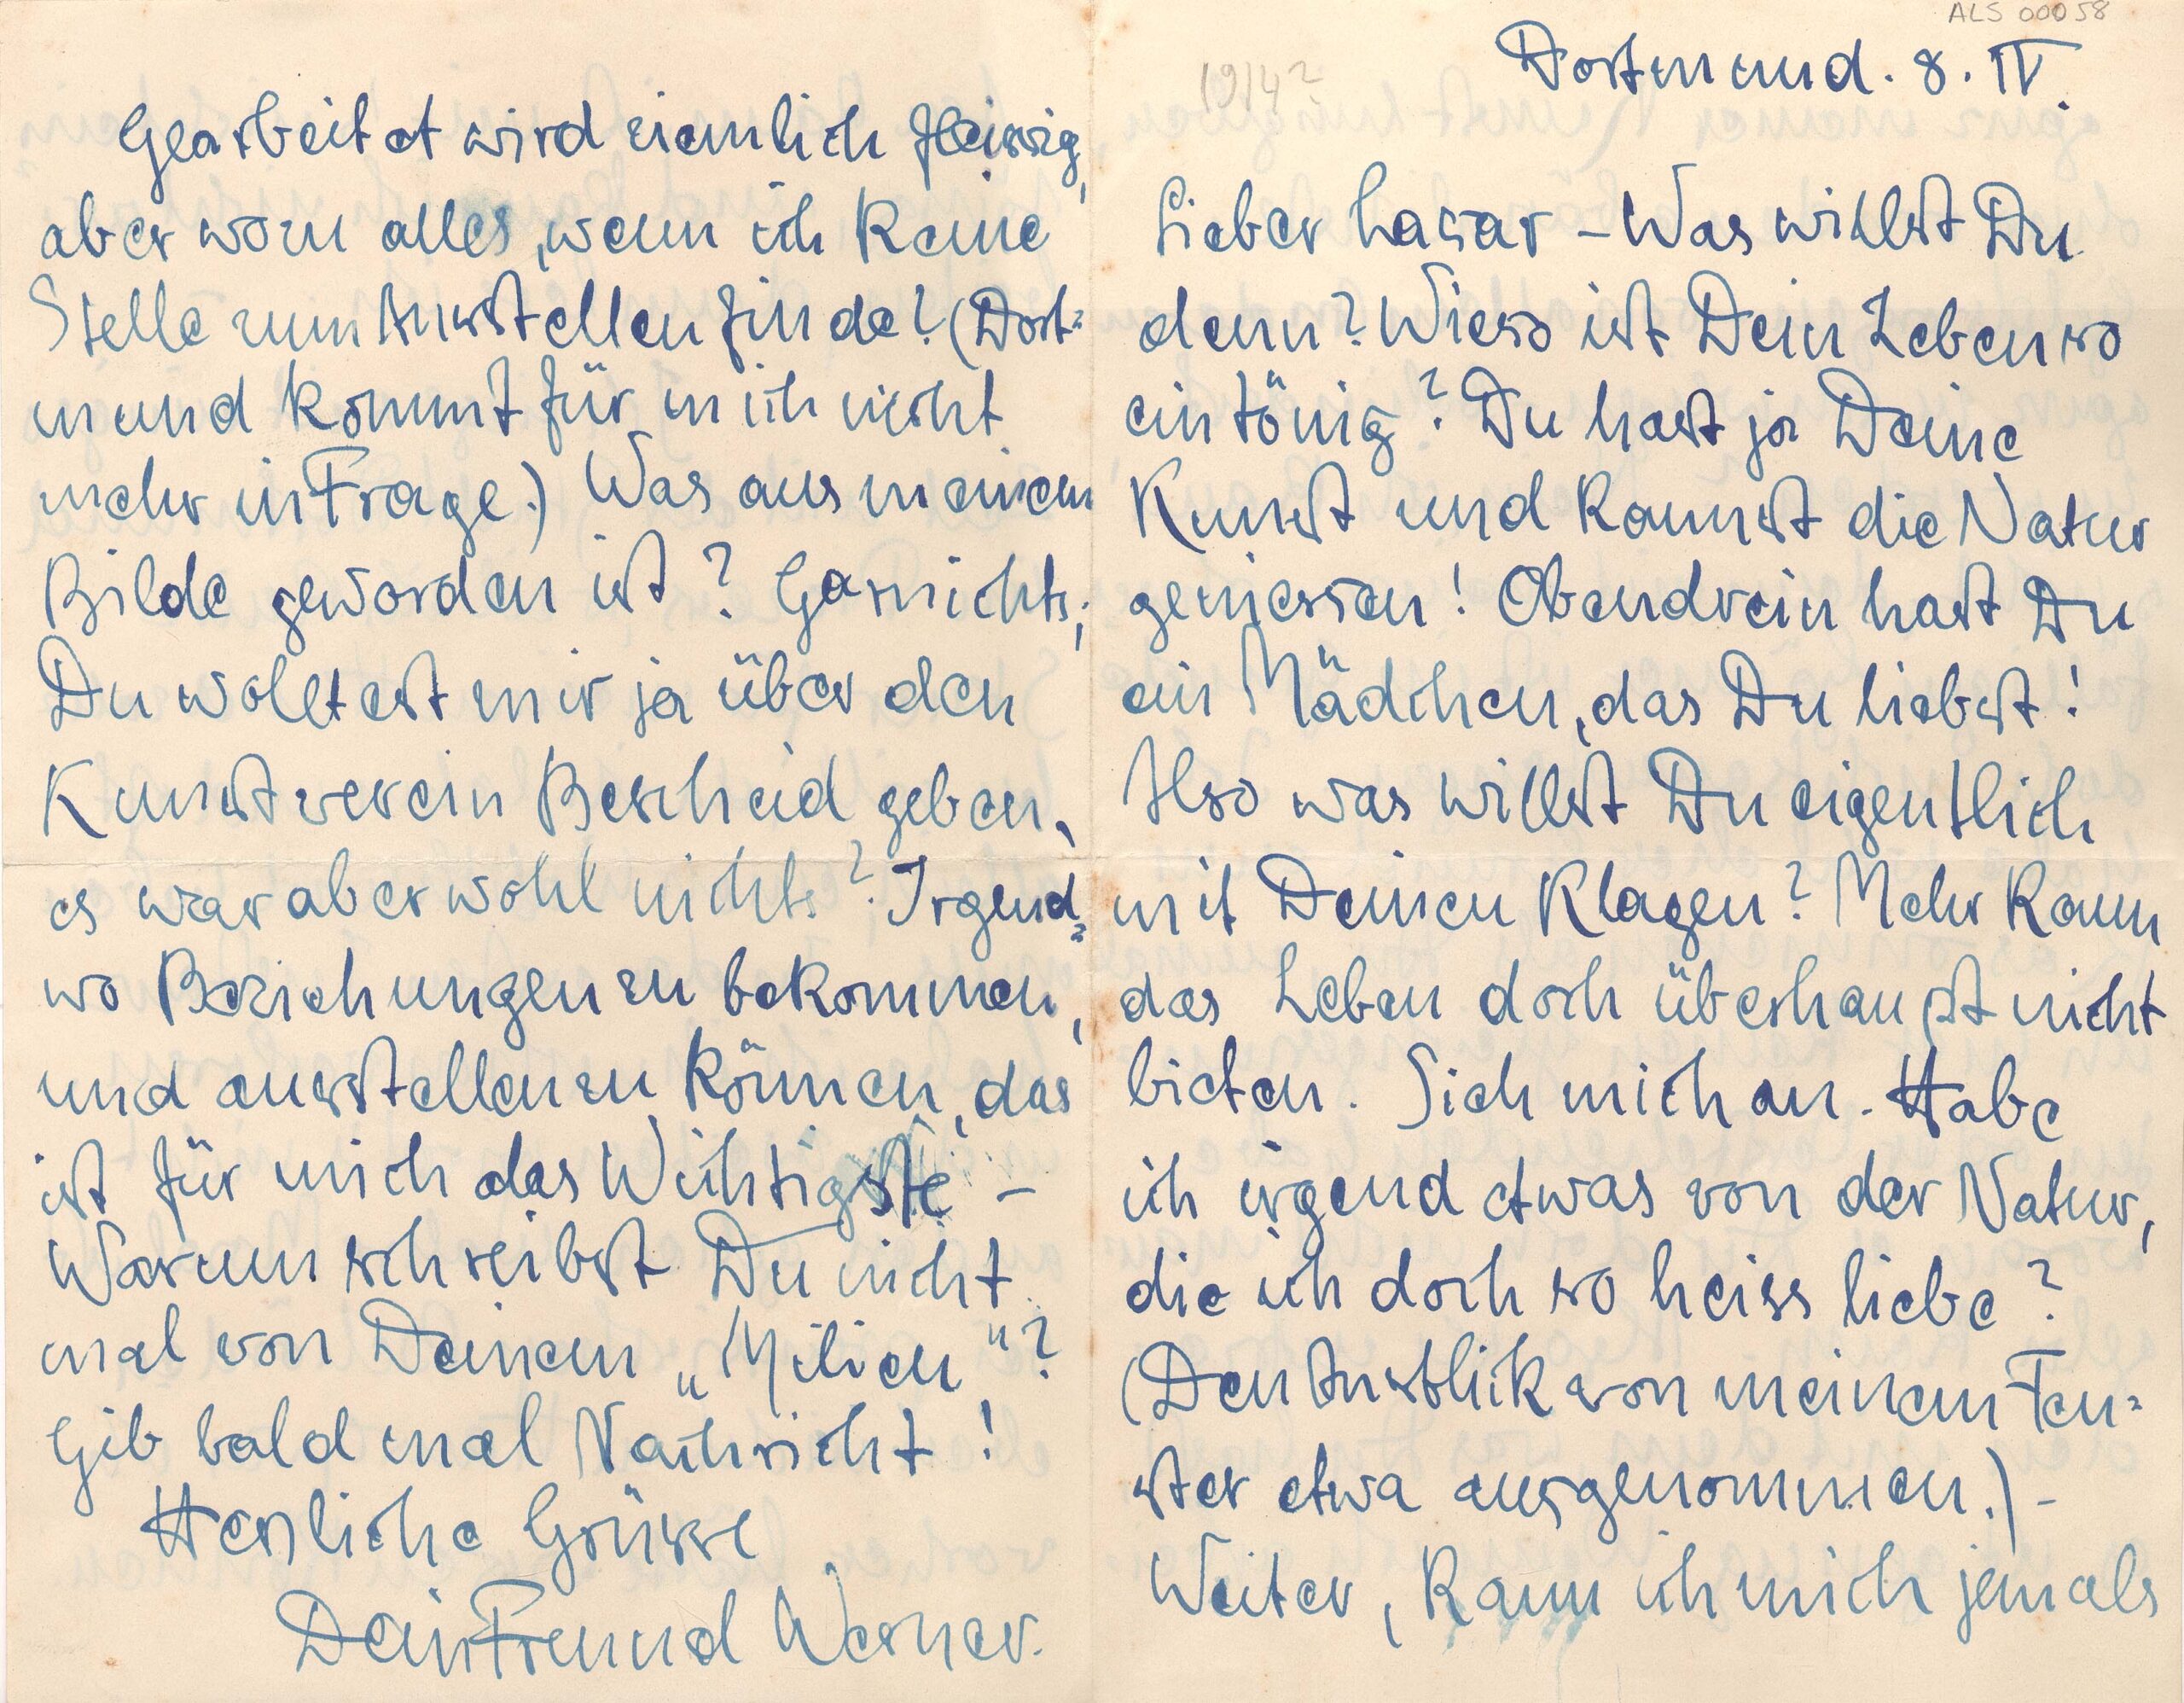 ALS 00058
1914?
Dortmund. 8. IV.
Lieber Lasar – Was willst Du
denn? Wieso ist Dein Leben so
eintönig? Du hast ja Deine
Kunst und kannst die Natur
geniessen! Obendrein hast Du
ein Mädchen, das Du liebst!
Also was willst Du eigentlich
mit Deinen Klagen? Mehr kann
das Leben doch überhaupt nicht
bieten. Sieh mich an. Habe
ich irgend etwas von der Natur,
die ich doch so heiss liebe?
(Den Ausblick von meinem Fen=
ster etwa ausgenommen.) –
Weiter, kann ich mich jemals
Gearbeitet wird ziemlich fleissig,
aber wozu alles, wenn ich keine
Stelle zum Ausstellen finde? (Dort=
mund kommt für mich nicht
mehr in Frage.) Was aus meinem
Bilde geworden ist? Garnichts;
Du wolltest mir ja über den
Kunstverein Bescheid geben,
es war aber wohl nichts? Irgend=
wo Beziehungen zu bekommen,
und ausstellen zu können, das
ist für mich das Wichtigste –
Warum schreibst Du nicht
mal von Deinem „Milieu"?
Gib bald mal Nachricht!
Herzliche Grüsse
Dein Freund Werner.